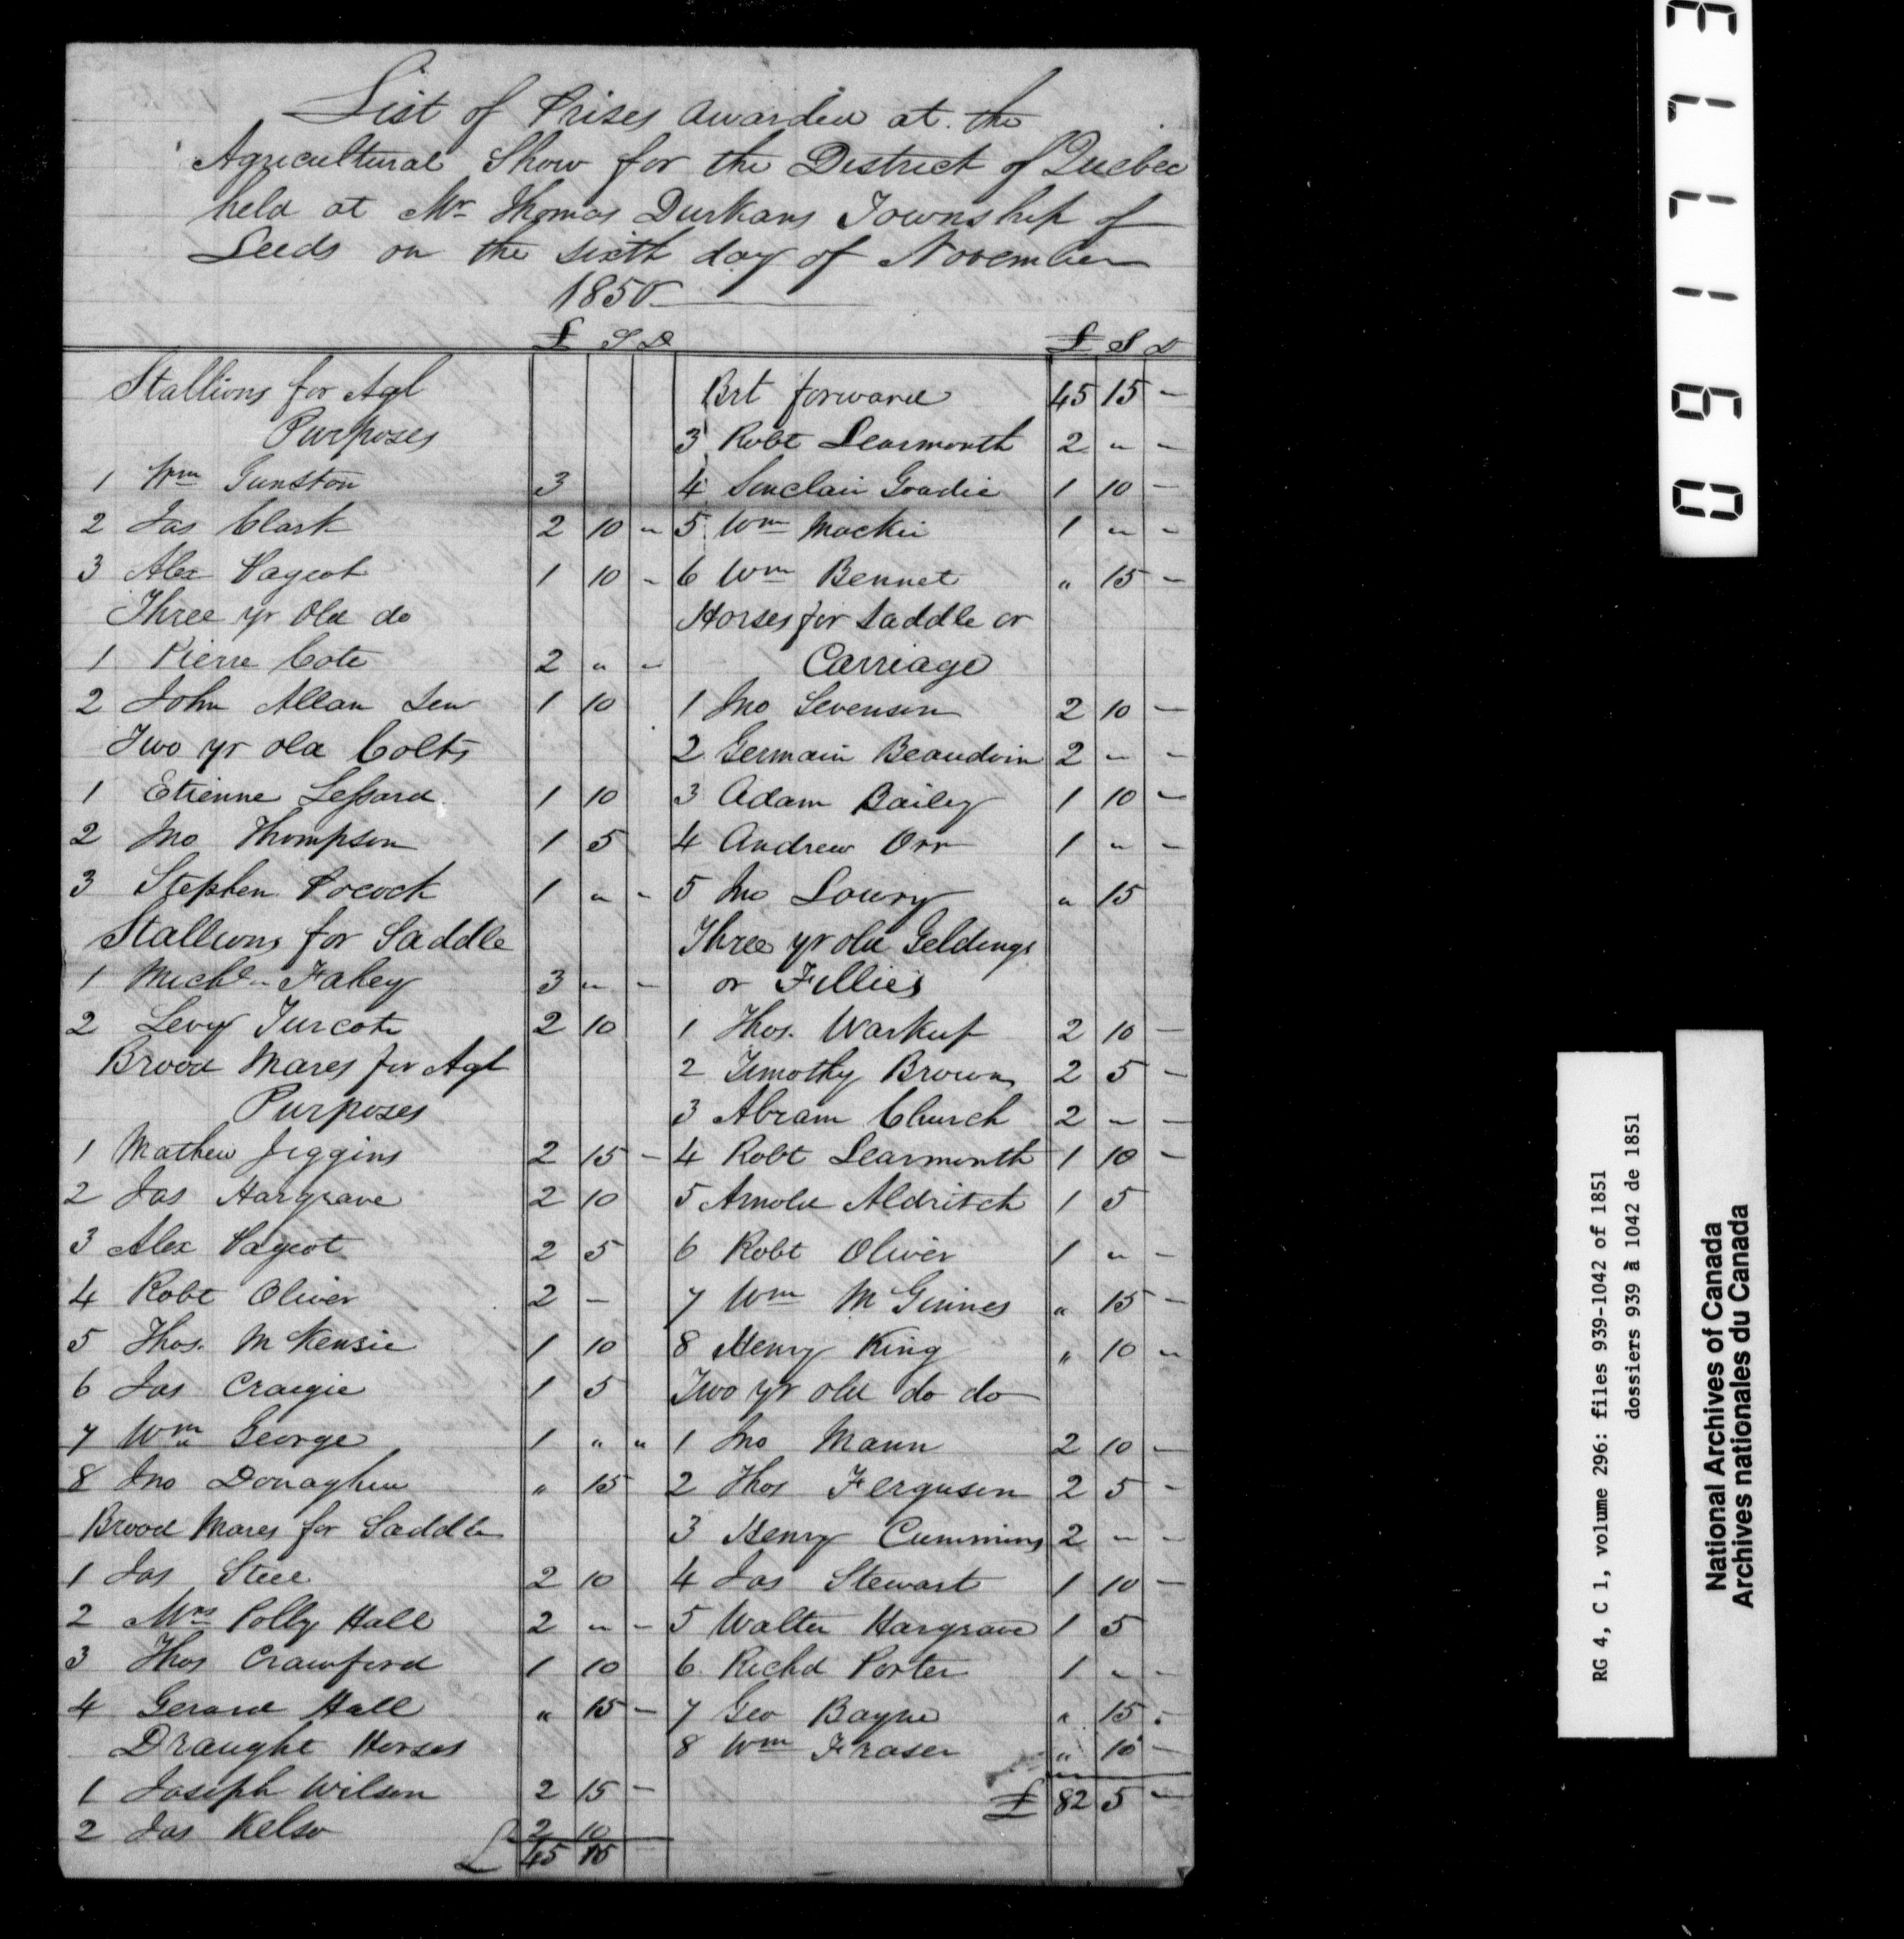 List of Prises awarded at the
Agricultural Show for the District of Quebec
held at Mr Thomas Durkans Township of
Leeds on the sixth day of November
1850
£ S D
Stallions for Agl
Purposes
1 Wm Gunston 3
2 Jas Clark 2 10 -
3 Alex Pageot 1 10 -
Three yr Old do
1 Pierre Cote 2 " -
2 John Allan Sen 1 10
Two yr old Colts
1 Etienne Lessard 1 10
2 Jno Thompson 1 5
3 Stephen Pocock 1 " -
Stallions for Saddle
1 Michl Fahey 3 " -
2 Levy Turcote 2 10
Brood Mares for Agl
Purposes
1 Mathew Jiggins 2 15 -
2 Jas Hargrave 2 10
3 Alex Pageot 2 5
4 Robt Oliver 2 -
5 Thos. McKensie 1 10
6 Jas Craigie 1 5
7 Wm George 1 " "
8 Jno Donaghue " 15
Brood Mares for Saddle
1 Jas Steel 2 10
2 Mrs Polly Hall 2 " -
3 Thos Crawford 1 10
4 Gerard Hall " 15 -
Draught Horses
1 Joseph Wilson 2 15 -
2 Jas Kelso 2 10
£ 45 15
£ S D
Brt forward 45 15 -
3 Robt Learmonth 2 " -
4 Sinclair Goadie 1 10 -
5 Wm Mackie 1 " -
6 Wm Bennet " 15 -
Horses for Saddle or
Carriage
1 Jno Sevenson 2 10 -
2 Germain Beaudoin 2 - -
3 Adam Bailey 1 10 -
4 Andrew Orr 1 " -
5 Jno Lowry " 15
Three yr old Geldings
or Fillies
1 Thos. Warkup 2 10 -
2 Timothy Brown 2 5 -
3 Abram Church 2 - -
4 Robt Learmonth 1 10 -
5 Arnold Aldritch 1 5
6 Robt Oliver 1 " -
7 Wm McGinnes " 15 -
8 Henry King " 10 "
Two yr old do do
1 Jno Mann 2 10 -
2 Thos Ferguson 2 5 -
3 Henry Cummins 2 - -
4 Jas Stewart 1 10 -
5 Walter Hargrave 1 5
6 Richd Porter 1 " -
7 Geo Bayne " 15 -
8 Wm Fraser " 10 -
£ 82 5 -
091173
RG 4, C 1, volume 296: files 939-1042 of 1851
dossiers 939 à 1042 de 1851
National Archives of Canada
Archives nationales du Canada